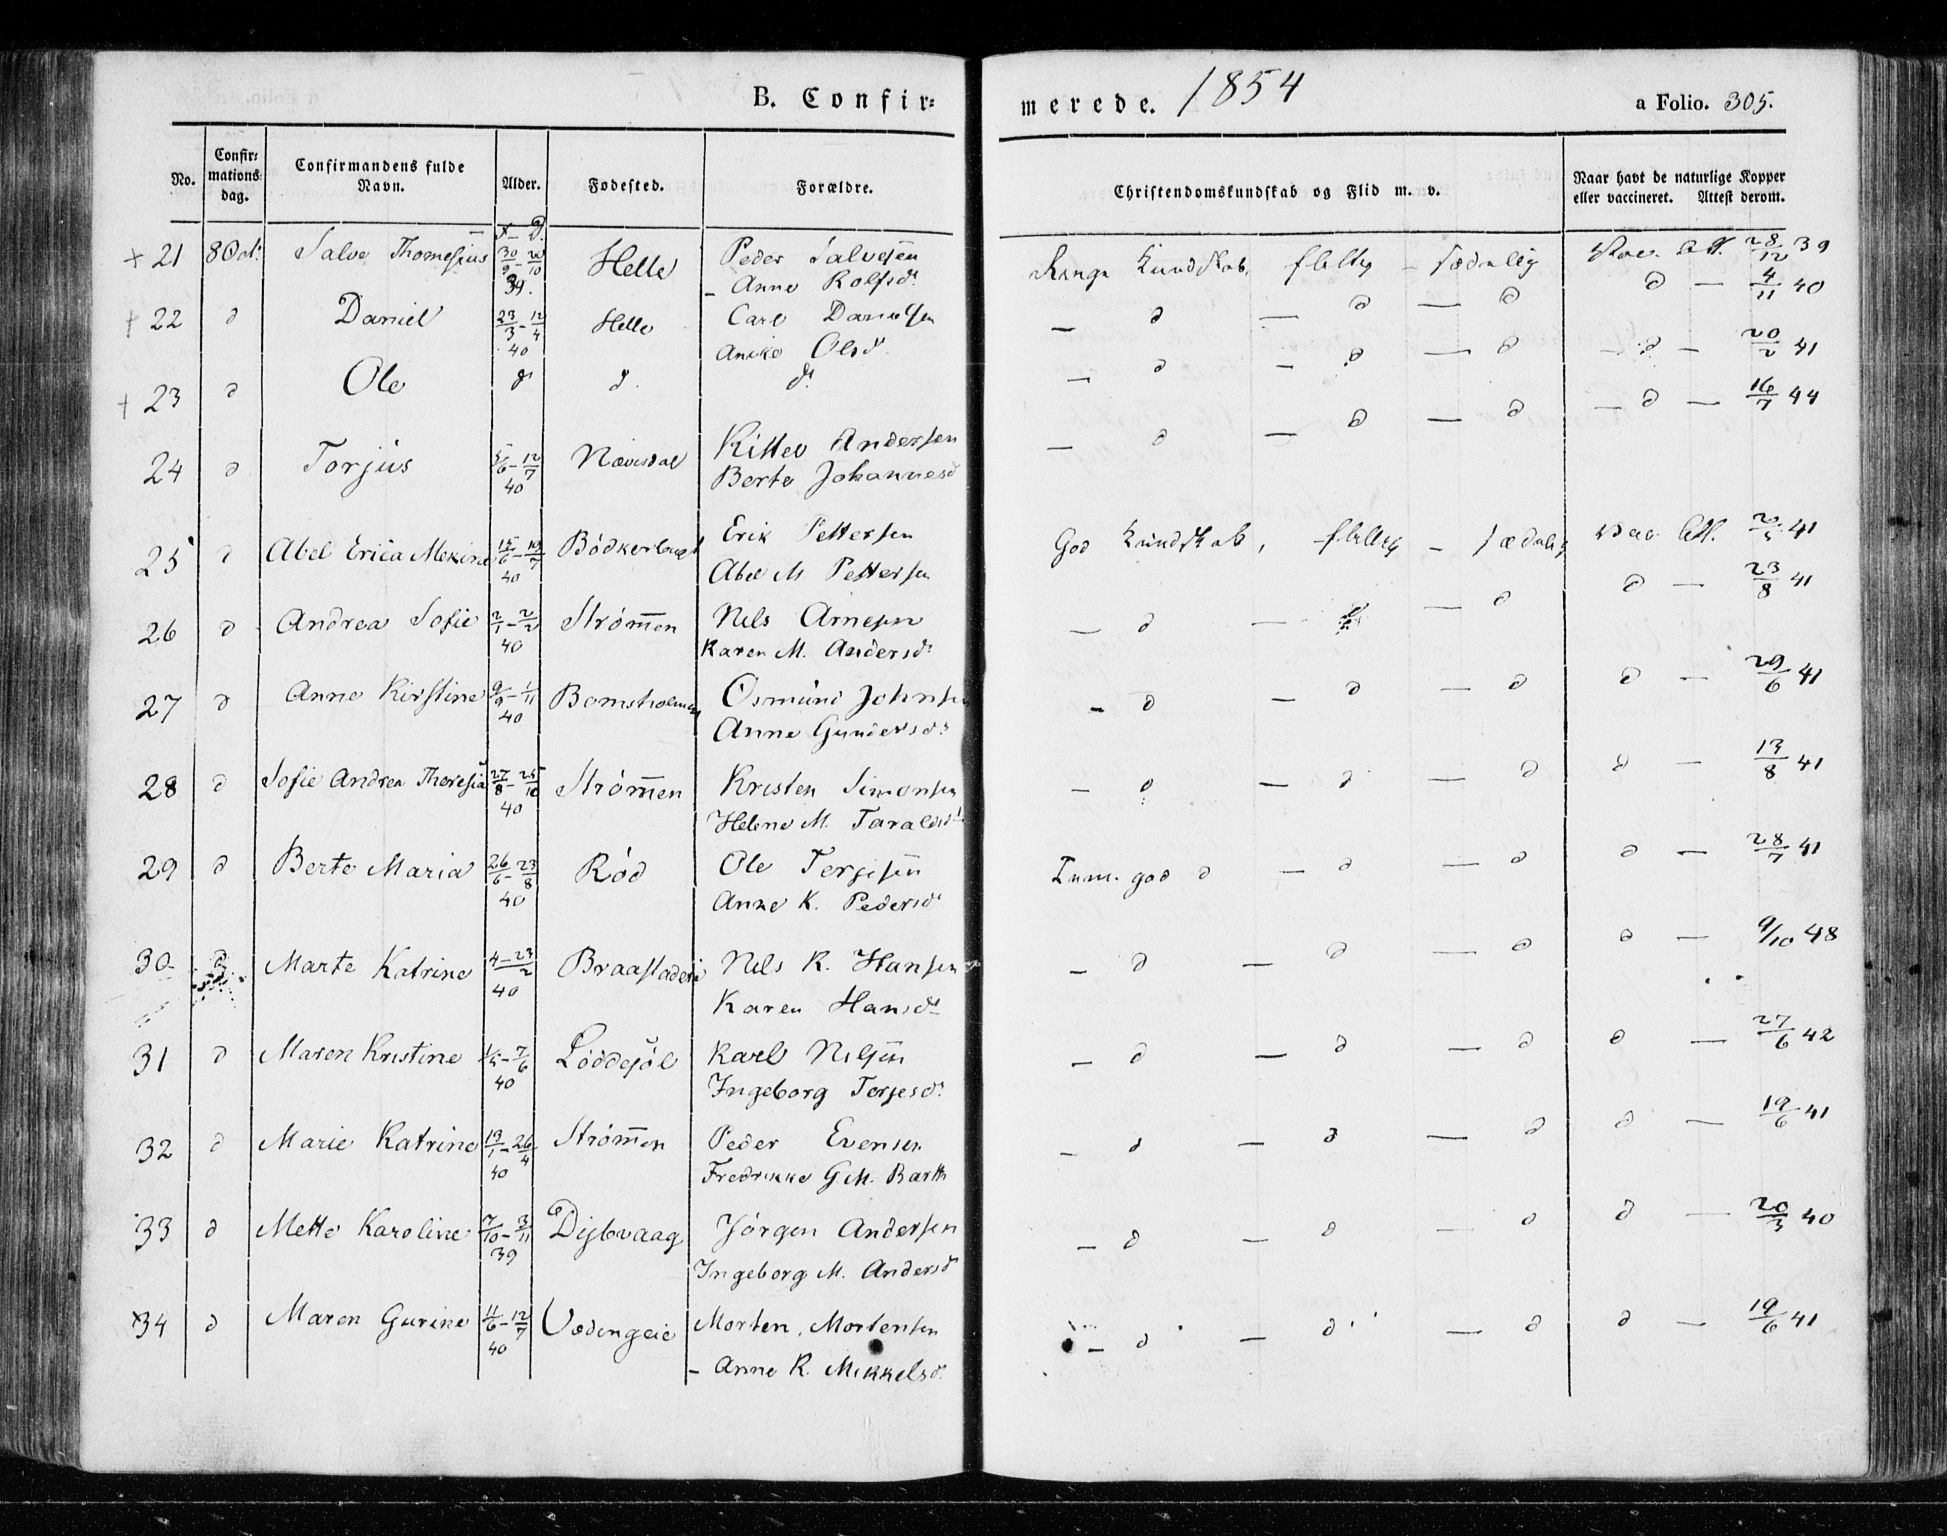 B. Confir=
merede. 1854
a Folio. 305.
No.
Confir=
mations=
dag.
Confirmandens fulde
Navn.
Alder.
Fødested.
Forældre.
Christendomskundskab og Flid m. v.
Naar havt de naturlige Kopper
eller vaccineret. Attest derom.
+ 21 8 Oct. Salve 30/9 - 20/10 39. Helle Peder Salvesen
Anne Rolfsd. Kundskab, flittig - sædelig 28/12 39
+ 22 d Daniel 23/3 - 12/4 40 Helle Carl Danielsen
Olsd. - d - d - d d - 4/11 40
+ 23 d Ole d d. d. - d - d - d - d - 20/2 41
24 d Torjus 5/6 - 12/7 40 Kittel Andersen
Berte Johannesd - d - d - d - d - 16/7 44
25 d Abel 15/6 - 10/7 40 Erik Pettersen
Abel M Pettersen God Kundskab, flittig - sædelig Vac. Att. 41
26 d Andrea Sofie 2/1 - 2/2 40 Strømen Nils Arnesen
Karen M. Andersd. - d - d - d d - 23/8 41
27 d Anne Kirstine 9/9 - 1/11 40 Bomsholmen Osmund Johnsen
Anne Gundersd. - d - d - d d - 29/6 41
28 d Sofie Andrea Theresia 27/8 - 25/10 40 Strømen Kristen Simonsen
Helene M. Taraldsd. - d - d - d d - 13/8 41
29 d Berte Maria 26/6 - 23/8 40 Rød Ole Terjesen
Anne K. Pedersd. god d - d - d d - 28/7 41
30 d Marte Katrine 4-23/2 40 Nils R. Hansen
Karen Hansd. - d - d - d d - 9/10 48
31 d Maren Kristine 7/6 40 Løddesøl Karl Nilsen
Ingeborg Terjesd. - d - d - d d - 27/6 42
32 d Marie Katrine 13/1 - 26/4 40 Strømen Peder Evensen
Fredrikke G M. Barth - d - d - d d - 19/6 41
33 d Mette Karoline 7/10 - 3/11 39 Jørgen Andersen
Ingeborg M. Andersd. - d - d - d d - 20/3 40
34 d Maren Gurine 11/6 - 12/7 40 Morten Mortensen
- Anne K. Mikkelsd. - d - d - d d - 19/6 41